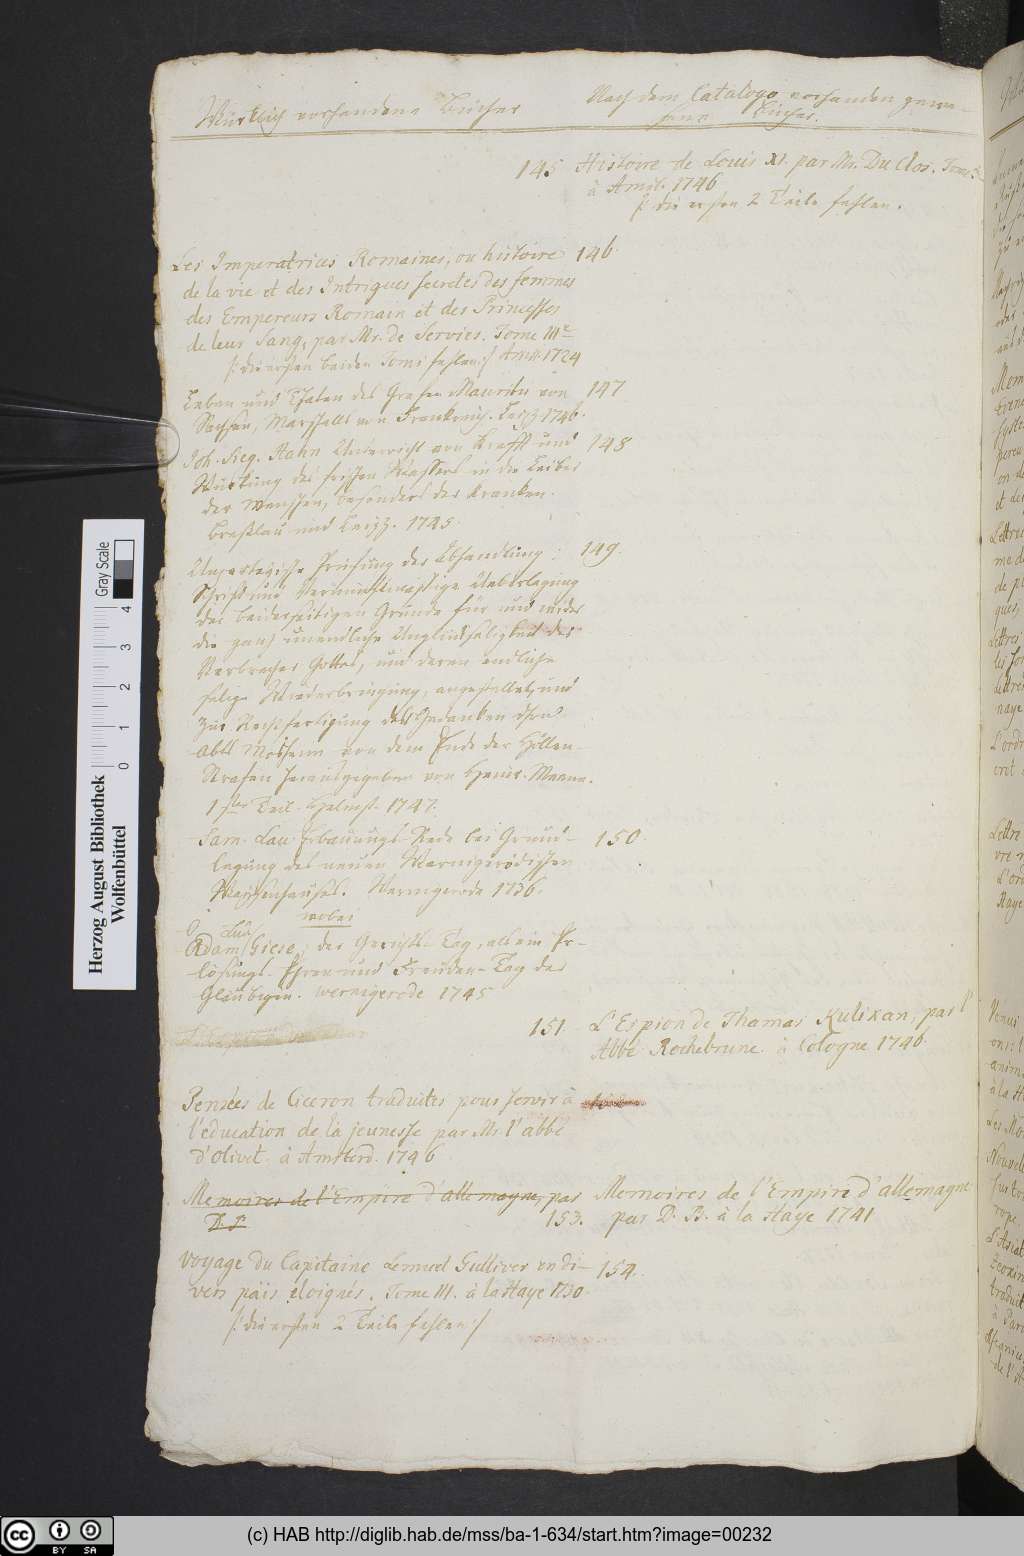 Würklich vorhandene Bücher
Nach dem Catalogo vorhanden gewe-
sene Bücher.
145 Histoire de Louis XI. par Mr. Du Clos. Tome 3e
à Amst. 1746
/: die ersten 2 Teile fehlen.
Les Imperatrices Romaines, ou histoire 146.
de la vie et des Intrigues secretes des femmes
des Empereurs Romain et des Princesses
de leur Sang, par Mr. de Servies. Tome IIIe
/: die ersten beiden Toms fehlen :/ Amst. 1724
Leben und Thaten des Grafen Mauritii von 147
Sachsen, Marschalls von Frankreich. Leipz. 1746.
Joh. Sieg. Hahn Unterricht von Krafft und 148
Würkung des frischen Wassers in die Leiber
der Menschen, besonders der Kranken.
Breßlau und Leipz. 1745.
Unparteyische Prüfung der Abhandlung: 149.
Schrift und Vernunftmässige Ueberlegung
der beiderseitigen Gründe für und wieder
die ganz unendliche Unglückseligkeit der
Verbrecher Gottes, und deren endliche
selige Wiederbringung, angestellet, und
zur Rechtfertigung der Gedanken Ihro
Abts Mosheim von dem Ende der Höllen-
Strafen herausgegeben von
1ster Teil. Helmst. 1747.
Sam. Lau Erbauungs-Rede bei Grund- 150
legung des neuen Wernigerödischen
Waysenhauses. Wernigerode 1736.
wobei
Lud.
Adam Giese, der Gerichts-Tag, als ein Er-
lösungs- Ehren- und Freuden-Tag der
Gläubigen. Wernigerode 1745
151. L'Espion de Thamas Kulixan, par l'
Abbé Rochebrune. à Cologne 1746.
Pensées de Ciceron traduites pour servir à
l'education de la jeunesse par Mr. l'abbé
d'olivet. à Amsterd. 1746
Memoires de l'Empire d'allemagne, par
D. B.
153. Memoires de l'Empire d'allemagne
par D. B. à la Haye 1741
Voyage du Capitaine Lemuel Gulliver en di- 154.
vers païs éloignés. Tome III. à la Haye 1730.
/: die ersten 2 Teile fehlen :/
Herzog August Bibliothek
Wolfenbüttel
0 1 2 3 4
Gray Scale
cc BY SA
(c) HAB http://diglib.hab.de/mss/ba-1-634/start.htm?image=00232